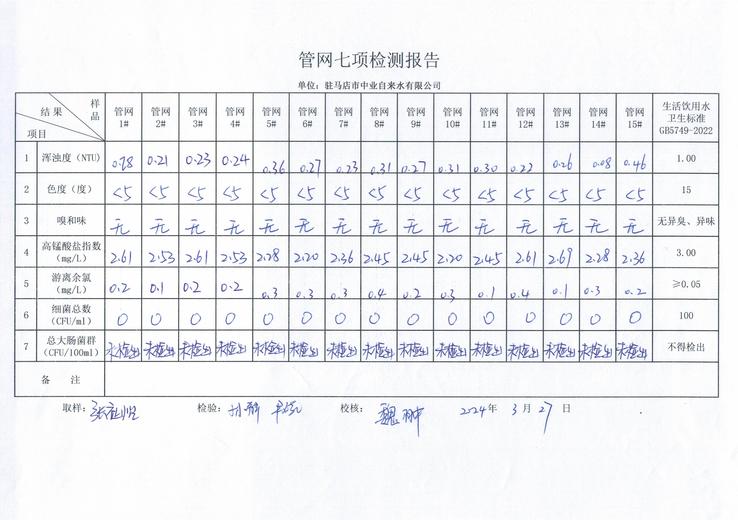 管网七项检测报告
单位：驻马店市中业自来水有限公司
结果 样品 项目 管网1# 管网2# 管网3# 管网4# 管网5# 管网6# 管网7# 管网8# 管网9# 管网10# 管网11# 管网12# 管网13# 管网14# 管网15# 生活饮用水卫生标准GB5749-2022
1 浑浊度（NTU） 0.28 0.21 0.23 0.24 0.36 0.27 0.23 0.31 0.27 0.31 0.30 0.22 0.26 0.08 0.46 1.00
2 色度（度） <5 <5 <5 <5 <5 <5 <5 <5 <5 <5 <5 <5 <5 <5 <5 15
3 嗅和味 无 无 无 无 无 无 无 无 无 无 无 无 无 无 无 无异臭、异味
4 高锰酸盐指数（mg/L） 2.61 2.53 2.61 2.53 2.28 2.20 2.36 2.45 2.45 2.20 2.45 2.61 2.69 2.28 2.36 3.00
5 游离余氯（mg/L） 0.2 0.1 0.2 0.2 0.3 0.3 0.3 0.4 0.2 0.3 0.1 0.4 0.1 0.3 0.2 ≥0.05
6 细菌总数（CFU/ml） 0 0 0 0 0 0 0 0 0 0 0 0 0 0 0 100
7 总大肠菌群（CFU/100ml） 未检出 未检出 未检出 未检出 未检出 未检出 未检出 未检出 未检出 未检出 未检出 未检出 未检出 未检出 未检出 不得检出
备 注
取样： 检验： 校核：魏翀 2024年 3月 27日